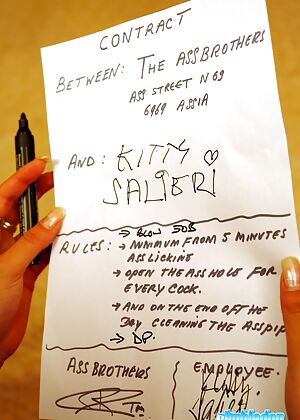 CONTRACT
BETWEEN: THE ASSBROTHERS
ASS STREET N 69
6969 ASSIA
AND: KITTY
SALIERI
→ BLOW JOB
RULES: → MINIMUM FROM 5 MINUTES
ASSLICKING
→ OPEN THE ASSHOLE FOR
EVERY COCK.
→ AND ON THE END OFF THE
DAY CLEANING THE ASSDIP
→ DP.
ASS BROTHERS
EMPLOYEE
TM